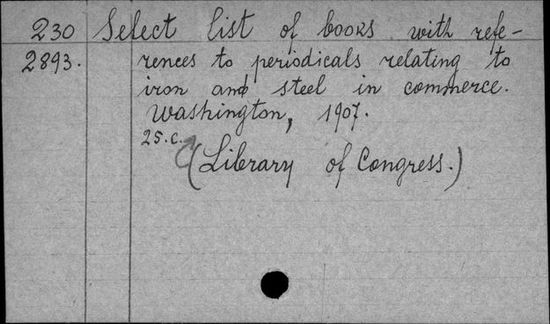 230 Select list of books with refe-
2893. rences to periodicals relating to
iron and steel in commerce.
Washington, 1907.
25.c.
(Library of Congress.)